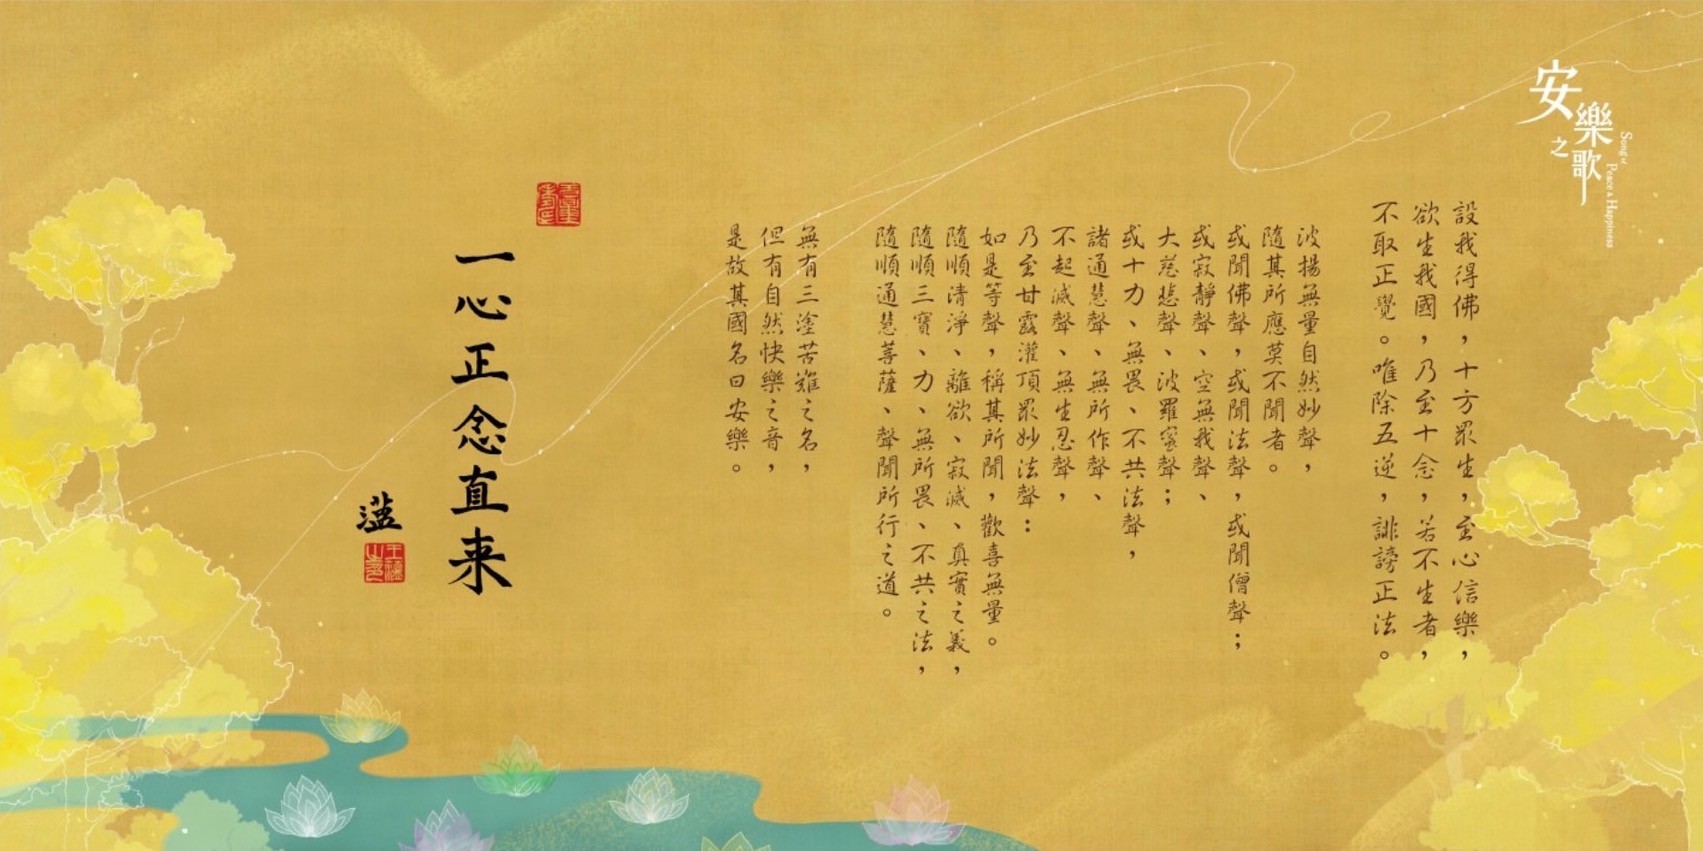 安樂之歌
Song of
Peace & Happiness
設我得佛，十方眾生，至心信樂，
欲生我國，乃至十念，若不生者，
不取正覺。唯除五逆，誹謗正法。
波揚無量自然妙聲，
隨其所應莫不聞者。
或聞佛聲，或聞法聲，或聞僧聲；
或寂靜聲、空無我聲、
大慈悲聲、波羅蜜聲；
或十力、無畏、不共法聲，
諸通慧聲、無所作聲、
不起滅聲、無生忍聲，
乃至甘露灌頂眾妙法聲：
如是等聲，稱其所聞，歡喜無量。
隨順清淨、離欲、寂滅、真實之義，
隨順三寶、力、無所畏、不共之法，
隨順通慧菩薩、聲聞所行之道。
無有三塗苦難之名，
但有自然快樂之音，
是故其國名曰安樂。
一心正念直来